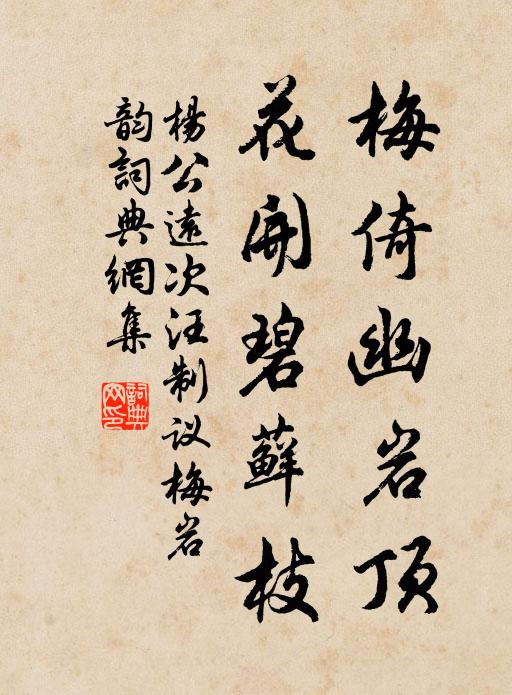 梅倚幽岩顶
花开碧藓枝
杨公远次汪制议梅岩
韵词典网集
词典网印